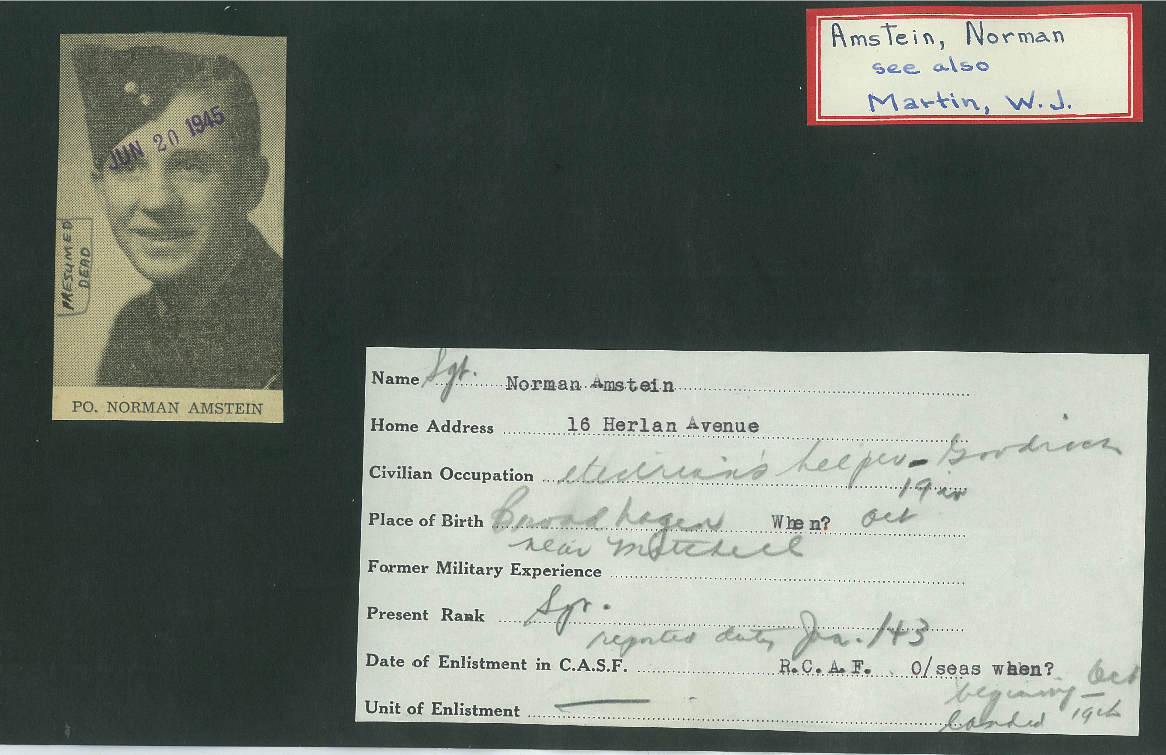 Amstein, Norman
see also
Martin, W.J.
JUN 20 1945
PRESUMED
DEAD
PO. NORMAN AMSTEIN
Name Sgt. Norman Amstein
Home Address 16 Herlan Avenue
Civilian Occupation electrician's helper - Goodrich
19
Place of Birth Broadhagen When? Oct
near Mitchell
Former Military Experience
Present Rank Sgt.
reported duty Jan. /43
Date of Enlistment in C.A.S.F. R.C.A.F. O/seas when? Oct
beginning
Unit of Enlistment landed 19th